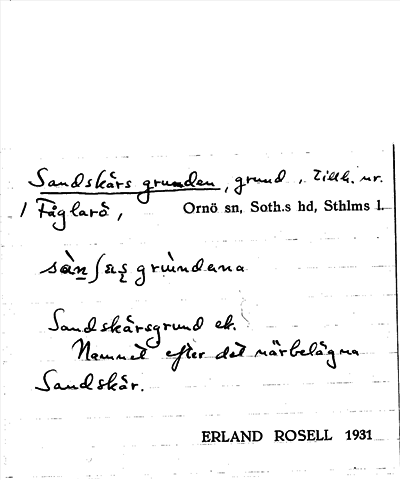 Sandskärs grunden, grund, Tillh. nr.
1 Fåglarö, Ornö sn, Soth.s hd, Sthlms l.
sàn̲ʃæʂ grùndəna
Sandskärsgrund ek.
Namnet efter det närbelägna
Sandskär.
ERLAND ROSELL 1931